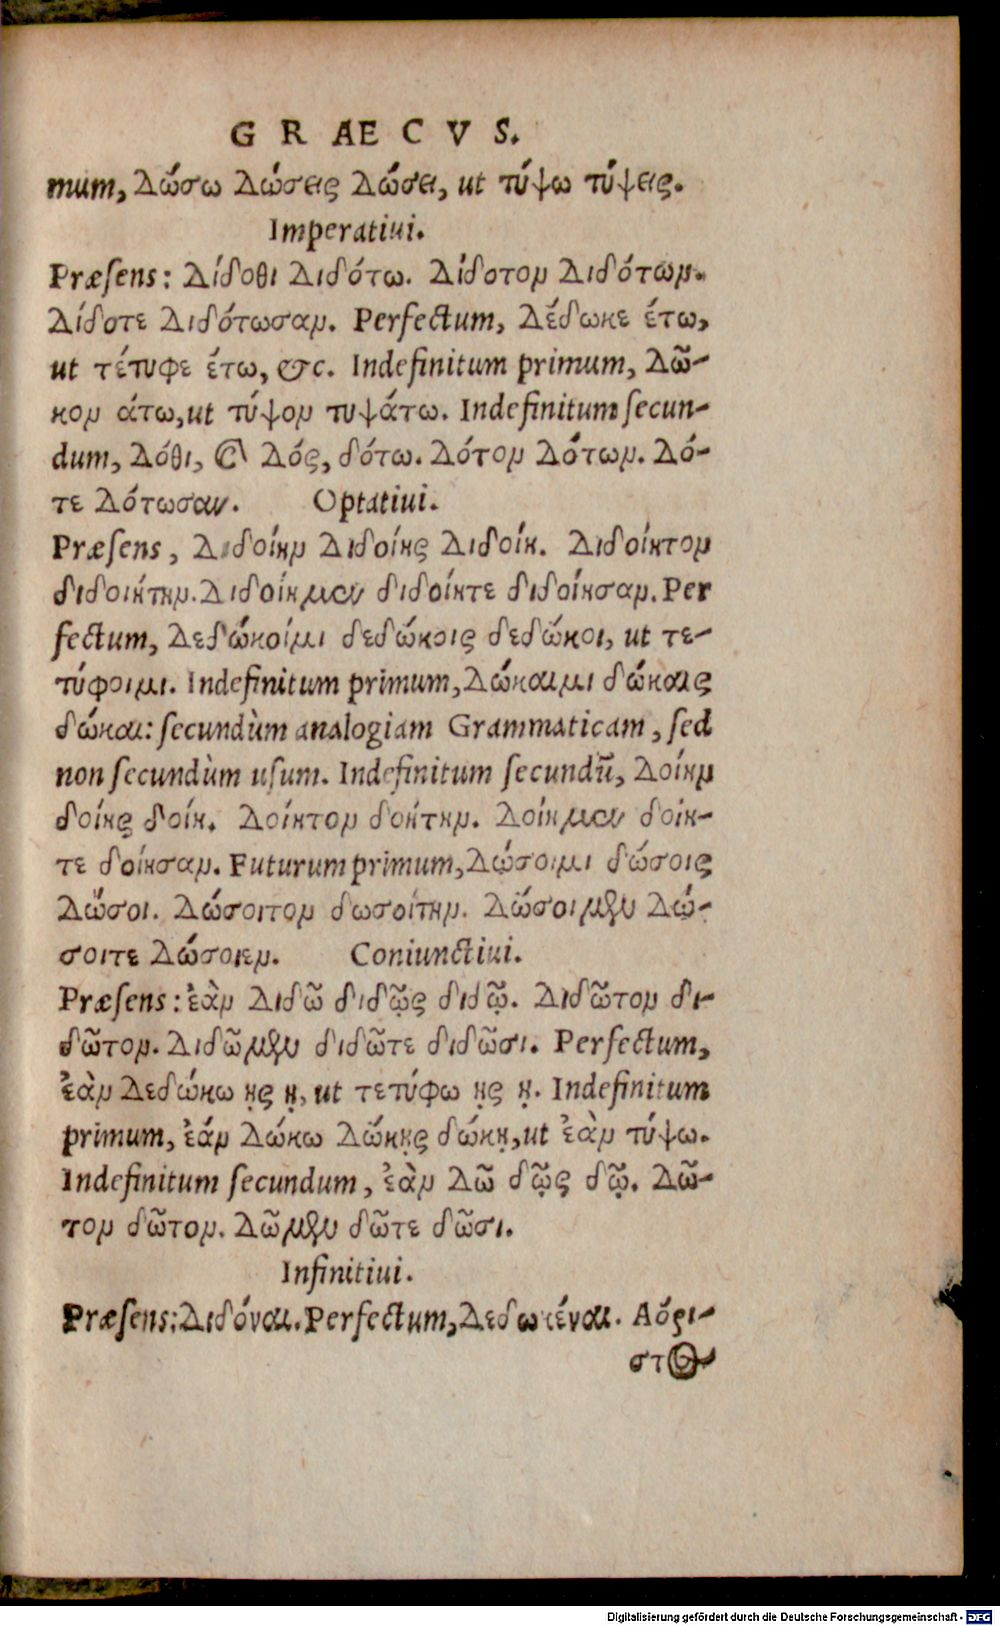 GRAECVS.
mum, Δώσω Δώσεις Δώσει, ut τύψω τύψεις.
Imperatiui.
Præsens: Δίδοθι Διδότω. Δίδοτον Διδότων.
Δίδοτε Διδότωσαν. Perfectum, Δέδωκε έτω,
ut τέτυφε έτω, &c. Indefinitum primum, Δῶ-
κον άτω, ut τύψον τυψάτω. Indefinitum secun-
dum, Δόθι, & Δός, δότω. Δότον Δότων. Δό-
τε Δότωσαν. Optatiui.
Præsens, Διδοίην Διδοίης Διδοίη. Διδοίητον
διδοιήτην. Διδοίημεν διδοίητε διδοίησαν. Per
fectum, Δεδώκοίμι δεδώκοις δεδώκοι, ut τε-
τύφοιμι. Indefinitum primum, Δώκαιμι δώκαις
δώκαι: secundùm analogiam Grammaticam, sed
non secundùm usum. Indefinitum secundũ, Δοίην
δοίης δοίη. Δοίητον δοήτην. Δοίημεν δοίη-
τε δοίησαν. Futurum primum, Δώσοιμι δώσοις
Δώσοι. Δώσοιτον δωσοίτην. Δώσοιμεν Δώ-
σοιτε Δώσοιεν. Coniunctiui.
Præsens: ἐὰν Διδῶ διδῷς διδῷ. Διδῶτον δι-
δῶτον. Διδῶμεν διδῶτε διδῶσι. Perfectum,
ἐὰν Δεδώκω ῃς ῃ, ut τετύφω ῃς ῃ. Indefinitum
primum, ἐάν Δώκω Δώκῃς δώκῃ, ut ἐὰν τύψω.
Indefinitum secundum, ἐὰν Δῶ δῷς δῷ. Δῶ-
τον δῶτον. Δῶμεν δῶτε δῶσι.
Infinitiui.
Præsens: Διδόναι. Perfectum, Δεδωκέναι. Αόρι-
στος
Digitalisierung gefördert durch die Deutsche Forschungsgemeinschaft - DFG